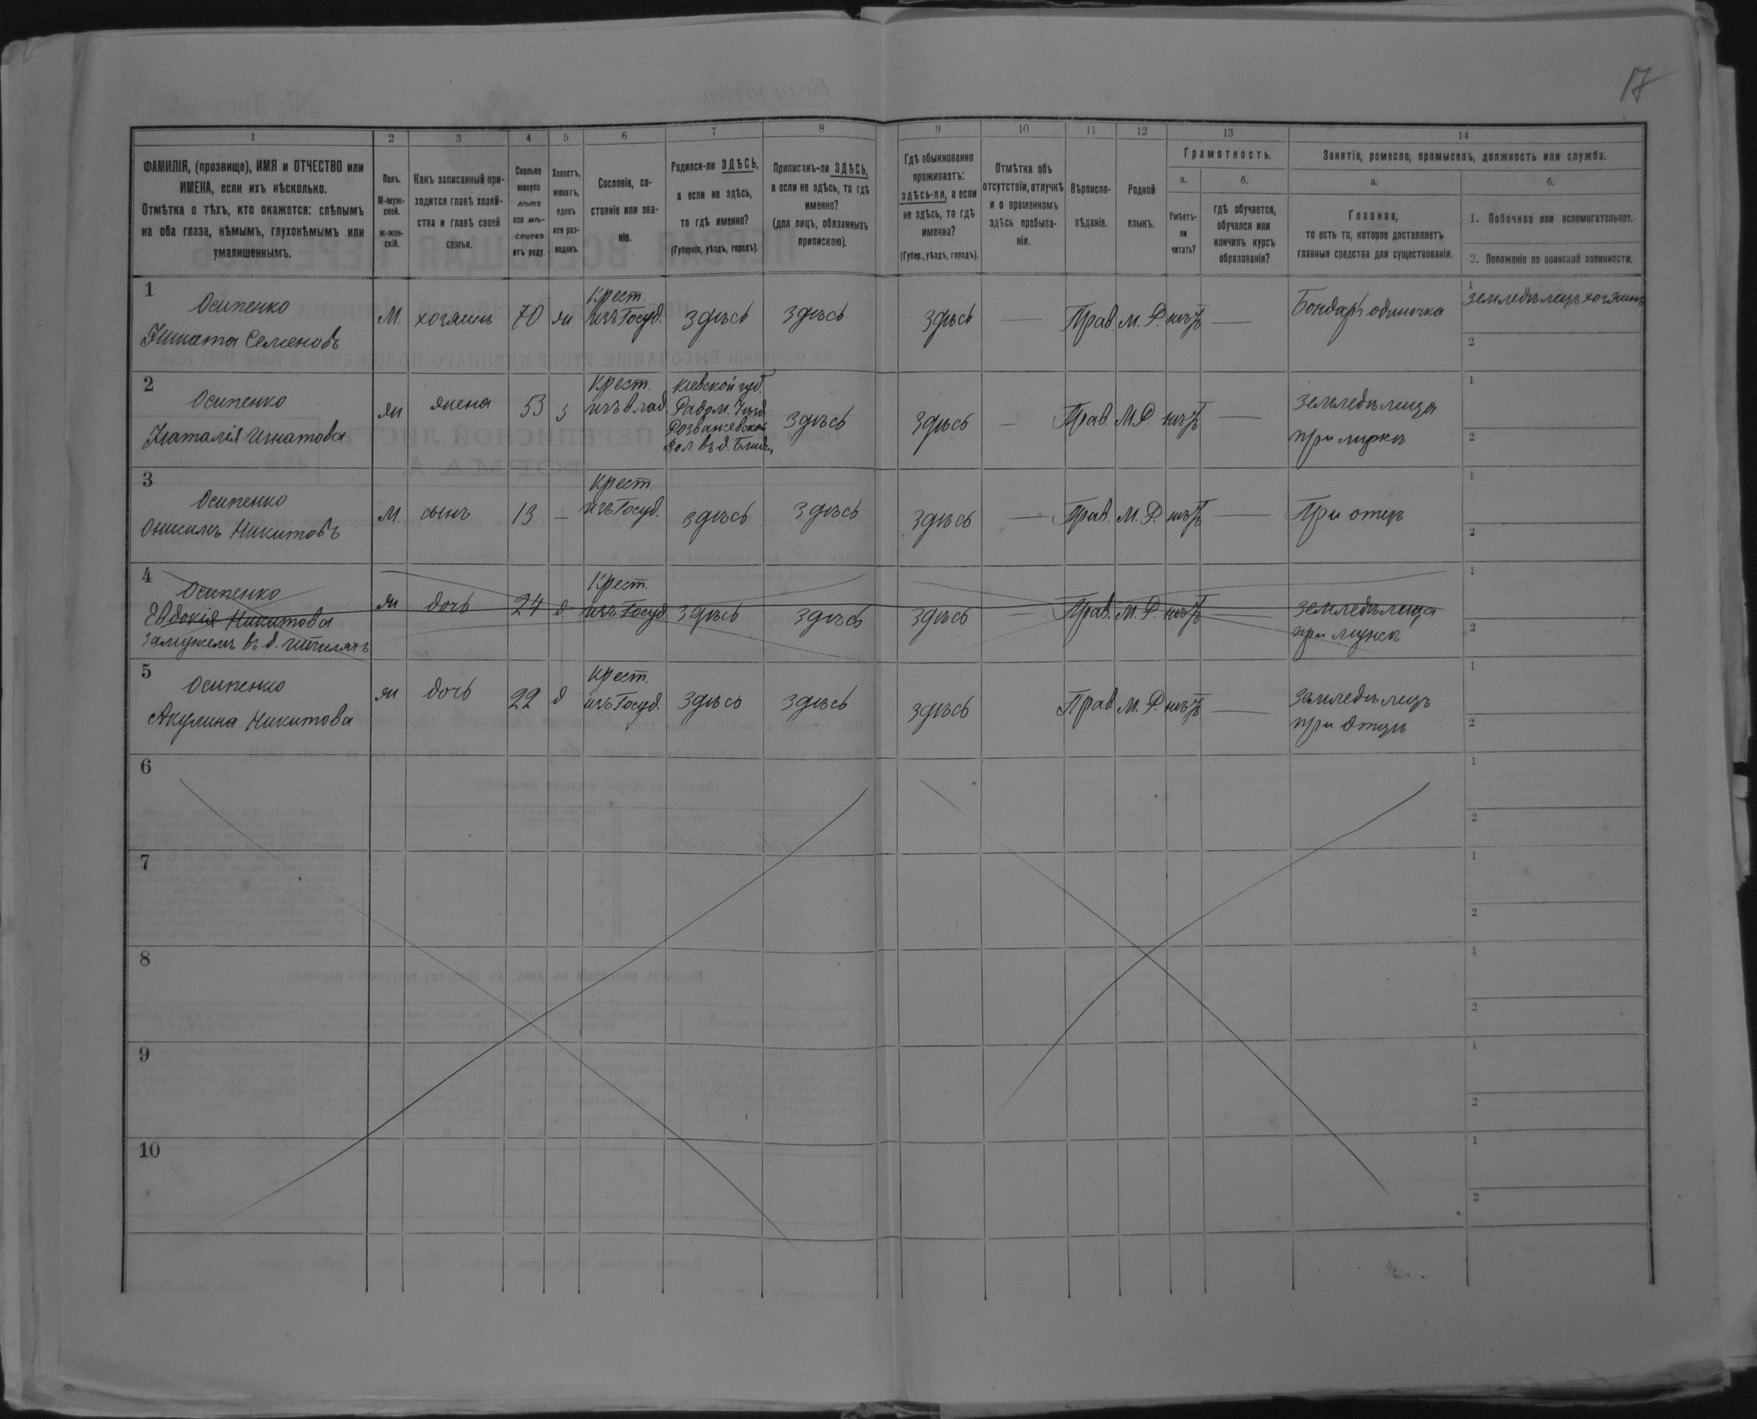 17
1 2 3 4 5 6 7 8 9 10 11 12 13 14
ФАМИЛІЯ, (прозвище), ИМЯ и ОТЧЕСТВО или
ИМЕНА, если ихъ нѣсколько.
Отмѣтка о тѣхъ, кто окажется: слѣпымъ
на оба глаза, нѣмымъ, глухонѣмымъ или
умалишеннымъ.
Полъ.
М-муж-
ской.
ж-жен-
скій.
Какъ записанный при-
ходится главѣ хозяй-
ства и главѣ своей
семьи.
Сколько
минуло
лѣтъ
или мѣ-
сяцевъ
отъ роду.
Холостъ,
женатъ,
вдовъ
или раз-
веденъ.
Сословіе, со-
стояніе или зва-
ніе.
Родился-ли ЗДѢСЬ,
а если не здѣсь,
то гдѣ именно?
(Губернія, уѣздъ, городъ).
Приписанъ-ли ЗДѢСЬ,
а если не здѣсь, то гдѣ
именно?
(для лицъ, обязанныхъ
припискою).
Гдѣ обыкновенно
проживаетъ:
здѣсь-ли, а если
не здѣсь, то гдѣ
именно?
(Губер., уѣздъ, городъ).
Отмѣтка объ
отсутствіи, отлучкѣ
и о временномъ
здѣсь пребыва-
ніи.
Вѣроиспо-
вѣданіе.
Родной
языкъ.
Грамотность.
а.
Умѣетъ-
ли
читать?
б.
гдѣ обучается,
обучался или
кончилъ курсъ
образованія?
Занятіе, ремесло, промыселъ, должность или служба.
а.
Главное,
то есть то, которое доставляетъ
главныя средства для существованія.
б.
1. Побочное или вспомогательное.
2. Положеніе по воинской повинности.
1
Осипенко
Никита Семеновъ
М. хозяинъ 70 ж
Крест.
изъ Госуд.
здѣсь здѣсь здѣсь — Прав. М.Р. нѣтъ —
Бондарь одиночка
1 земледѣлецъ хозяинъ
2
2
Осипенко
Наталія Игнатова
ж жена 53 з
Крест.
изъ влад.
Кіевской губ.
Радом. Уѣзд.
Розважевской
вол. въ д.
здѣсь здѣсь — Прав. М.Р. нѣтъ —
земледѣлица
при мужѣ
1
2
3
Осипенко
Онисимъ Никитовъ
М. сынъ 13 —
Крест.
изъ Госуд.
здѣсь здѣсь здѣсь — Прав. М.Р. нѣтъ —
При отцѣ
1
2
4
Осипенко
Евдокія Никитова
замужемъ въ д.
ж дочь 24 д.
Крест.
изъ Госуд.
здѣсь здѣсь здѣсь — Прав. М.Р. нѣтъ
земледѣлица
при мужѣ
1
2
5
Осипенко
Акулина Никитова
ж дочь 22 д
Крест.
изъ Госуд.
здѣсь здѣсь здѣсь Прав. М.Р. нѣтъ —
земледѣлецъ
при Отцѣ
1
2
6
1
2
7
1
2
8
1
2
9
1
2
10
1
2